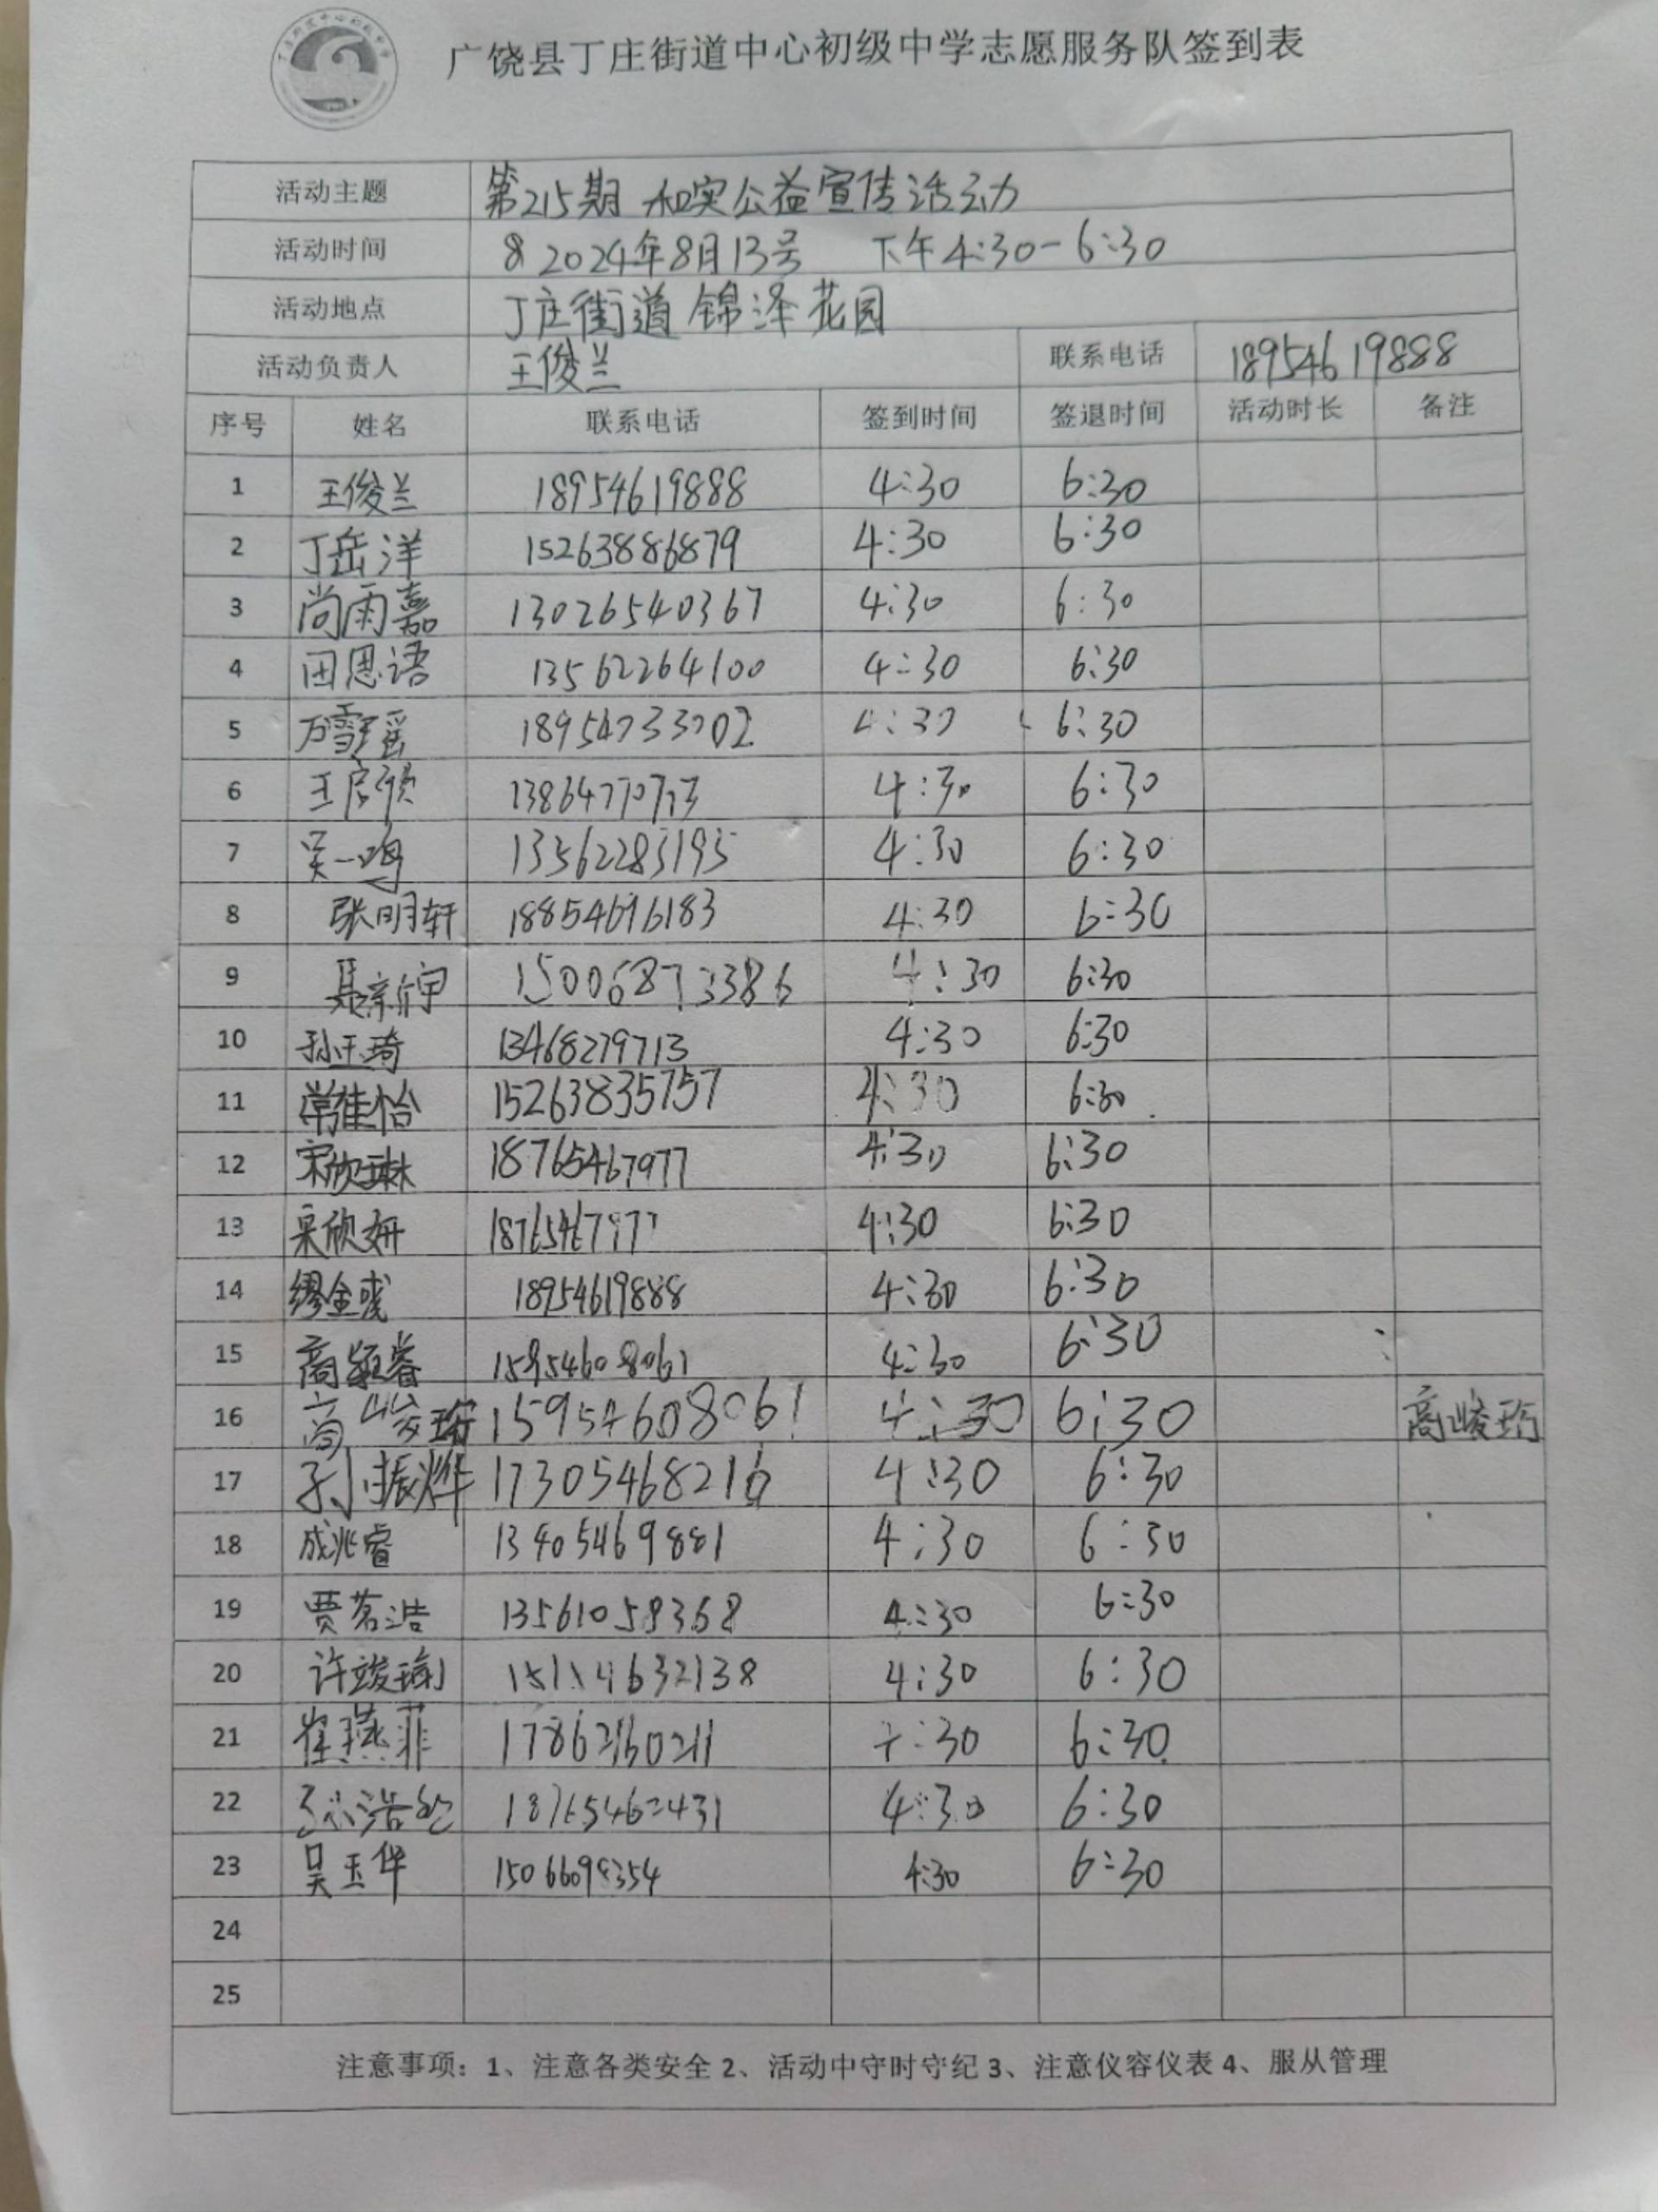 广饶县丁庄街道中心初级中学志愿服务队签到表
活动主题 第215期 和实公益宣传活动
活动时间 2024年8月13号 下午4:30-6:30
活动地点 丁庄街道 锦泽花园
活动负责人 王俊兰 联系电话 18954619888
序号 姓名 联系电话 签到时间 签退时间 活动时长 备注
1 王俊兰 18954619888 4:30 6:30
2 丁岳洋 15263886879 4:30 6:30
3 尚雨嘉 13026540367 4:30 6:30
4 田思语 13562264100 4:30 6:30
5 万雪瑶 18954733702 4:30 6:30
6 4:30 6:30
7 吴一鸣 13562283195 4:30 6:30
8 张明轩 18854696183 4:30 6:30
9 聂新宇 15006873386 4:30 6:30
10 孙玉琦 13468279713 4:30 6:30
11 常佳怡 15263835757 4:30 6:30
12 宋欣琳 18765467977 4:30 6:30
13 宋欣妍 18765467977 4:30 6:30
14 缪金彧 18954619888 4:30 6:30
15 商颖睿 15954608061 4:30 6:30
16 商峻珩 15954608061 4:30 6:30 商峻珩
17 孙振烨 17305468216 4:30 6:30
18 成兆睿 13405469881 4:30 6:30
19 贾茗浩 13561058368 4:30 6:30
20 4:30 6:30
21 崔燕菲 17862160211 6:30
22 4:30 6:30
23 吴玉华 15066098354 4:30 6:30
24
25
注意事项：1、注意各类安全 2、活动中守时守纪 3、注意仪容仪表 4、服从管理